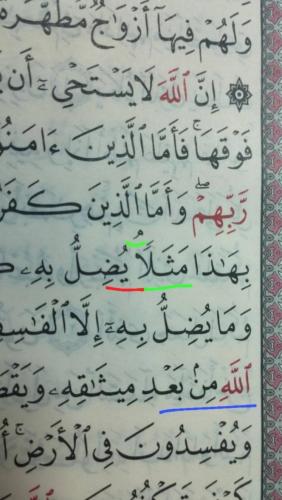 وَلَهُمْ فِيهَآ أَزْوَٰجٌ مُّطَهَّرَة
۞ إِنَّ ٱللَّهَ لَا يَسْتَحْىِۦٓ أَن
فَوْقَهَا ۚ فَأَمَّا ٱلَّذِينَ ءَامَنُو
رَّبِّهِمْ ۖ وَأَمَّا ٱلَّذِينَ كَفَرُ
بِهَٰذَا مَثَلًا ۘ يُضِلُّ بِهِۦ كَ
وَمَا يُضِلُّ بِهِۦٓ إِلَّا ٱلْفَٰسِقِ
ٱللَّهِ مِنۢ بَعْدِ مِيثَٰقِهِۦ وَيَقْطَ
وَيُفْسِدُونَ فِى ٱلْأَرْضِ ۚ أُ